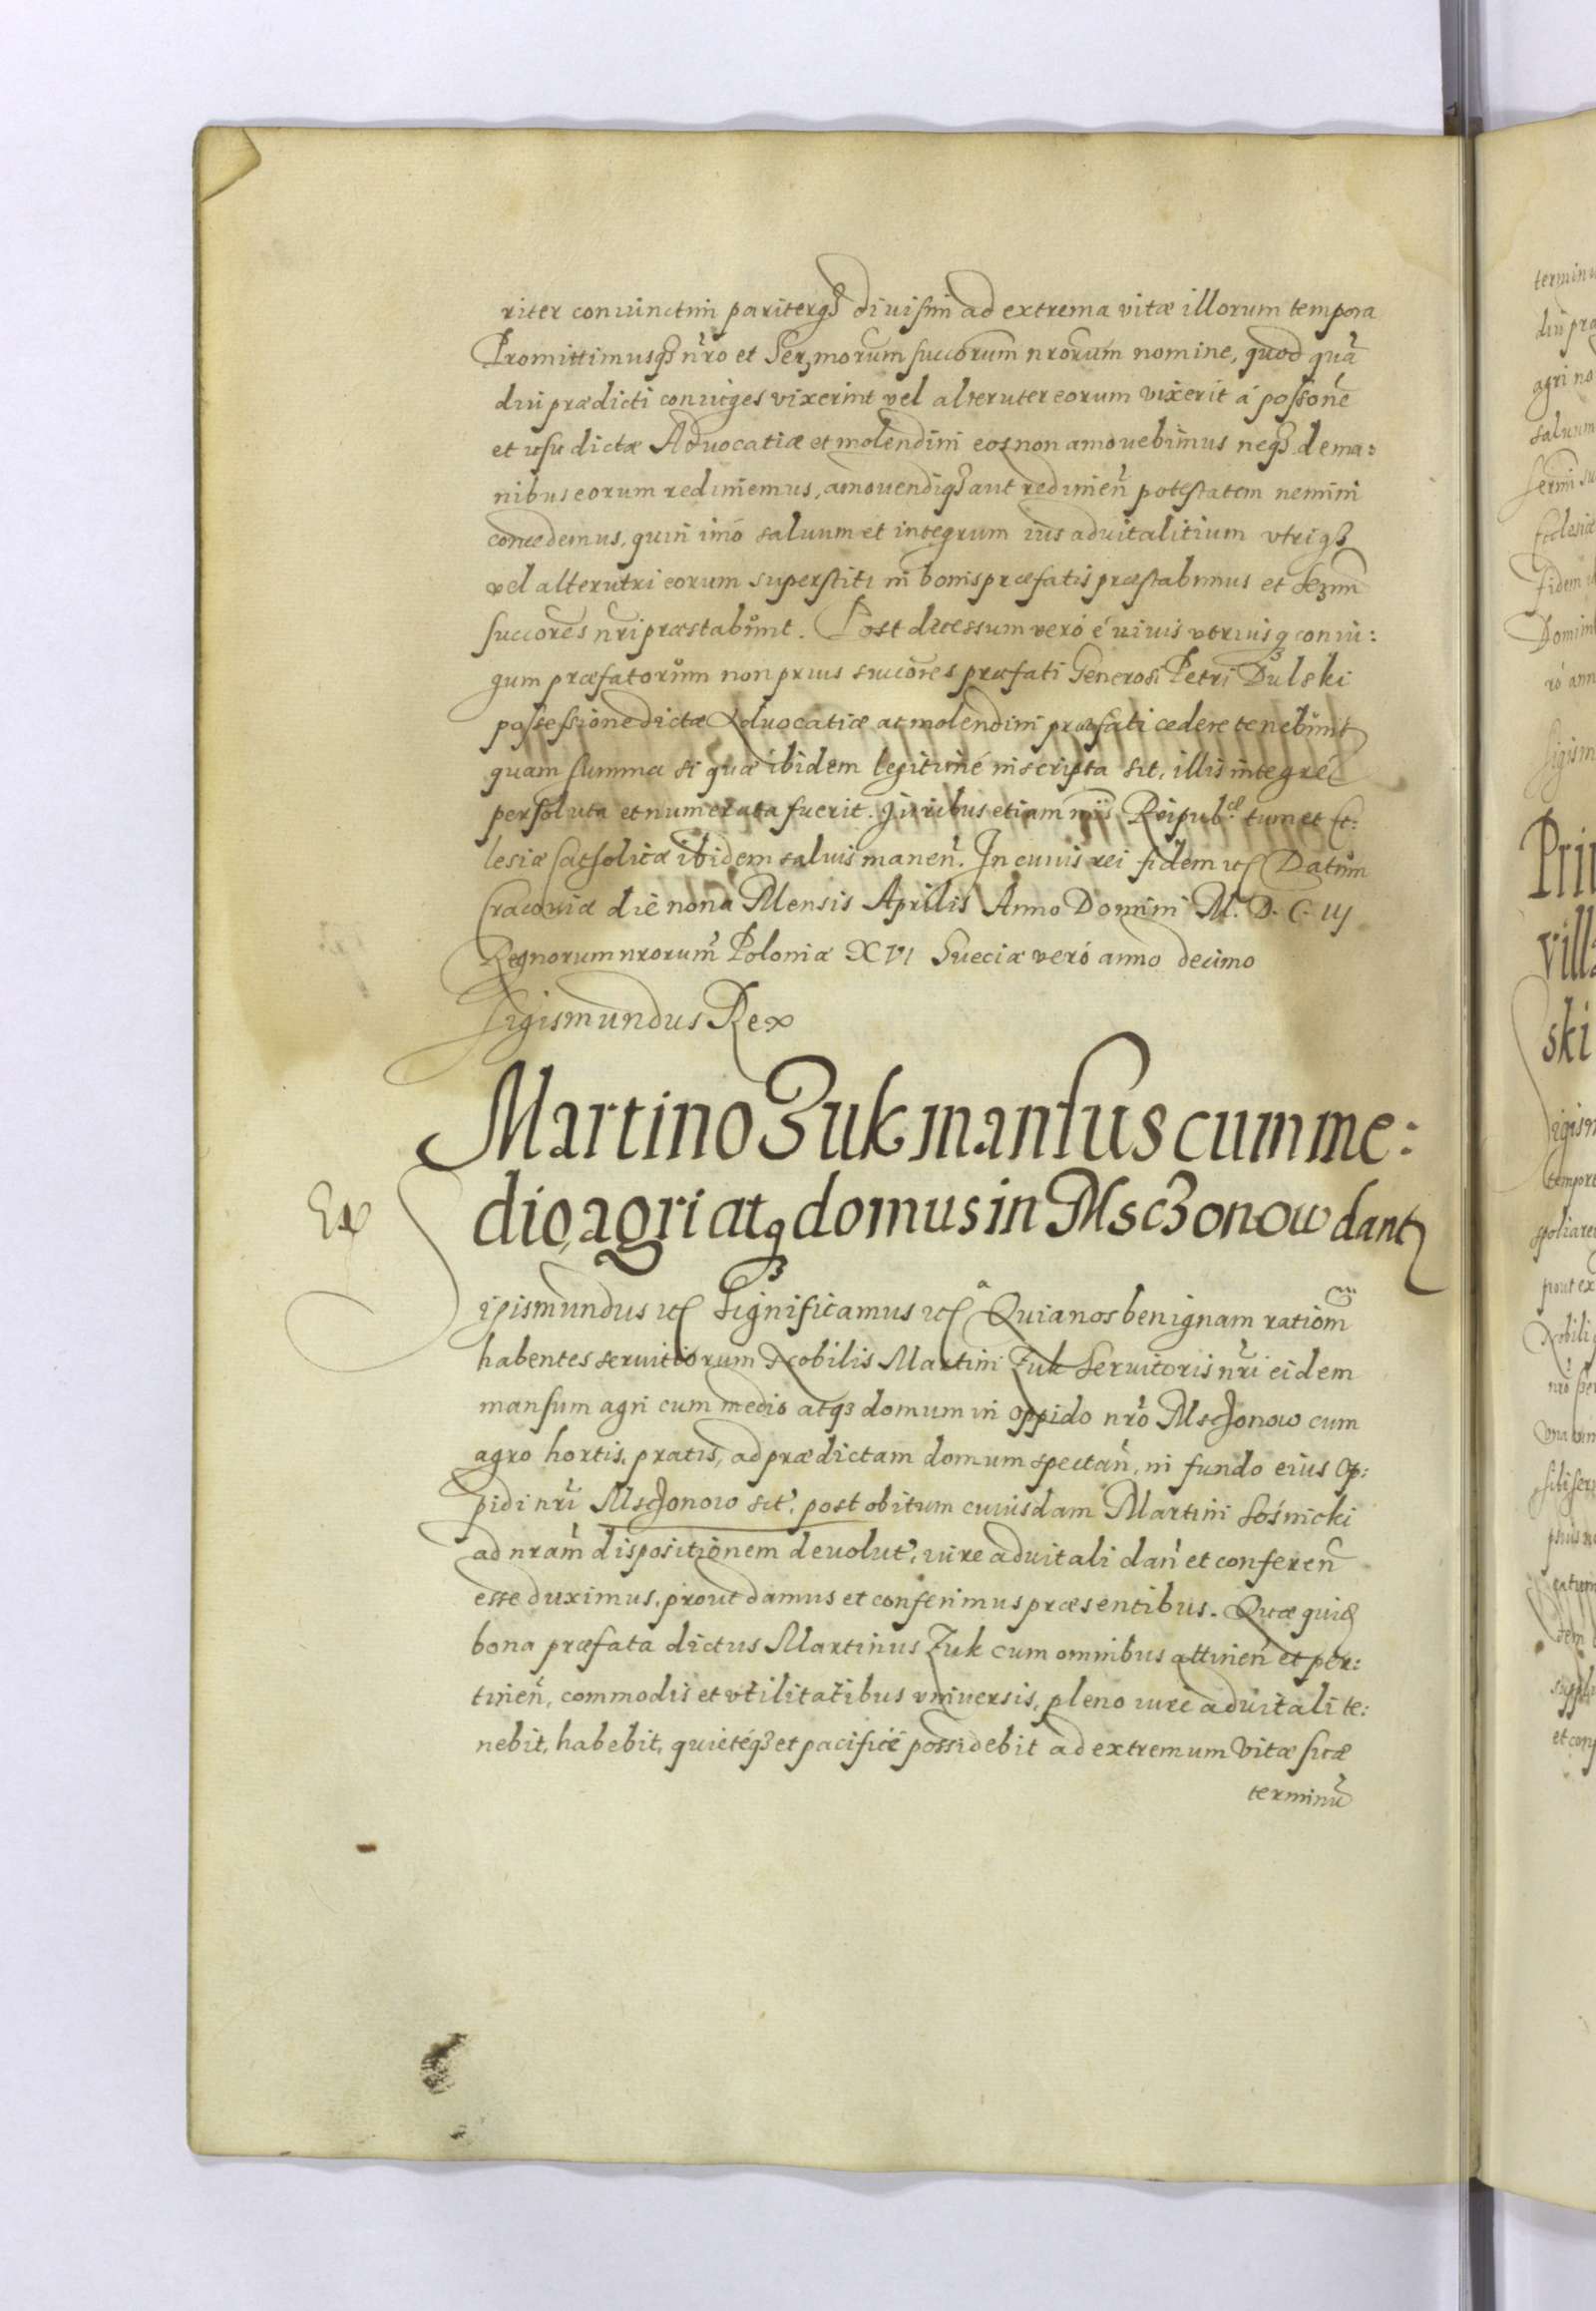 riter coniunctim pariterqꝫ diuisim ad extrema vitæ illorum tempora
Promittimusqꝫ nr̃o et Serꝫmorum succorum nrorum nomine, quod quã
diu prædicti coniuges vixerint vel alteruter eorum vixerit á possionẽ
et usu dictæ Aduocatiæ et molendini eos non amouebimus neqꝫ de ma:
nibus eorum redimemus, amouendiqꝫ aut redimeñ potestatem nemini
concedemus, quin imó saluum et integrum ius aduitalitium vtriqꝫ
vel alterutri eorum superstiti in bonis præfatis præstabimus et Serꝫmi
succores nr̃i præstabunt. Post decessum veró é viuis vtriusqꝫ coniu:
gum præfatorum non prius succores præfati Generosi Petri Dulski
possessione dictæ Aduocatiæ ac molendini præfati cedere tenebunt
quam summa si quæ ibidem legitimé inscripta sit, illis integré
persoluta et numerata fuerit. Juribus etiam nr̃is Reipub:æ tum et Ec:
lesiæ Catholicæ ibidem saluis maneñ. In cuius rei fidem etc̃ Datum
Cracouiæ die nona Mensis Aprilis Anno Domini M. D. C. iij
Regnorum nrorum̃ Poloniæ XVI Sueciæ veró anno decimo
Sigismundus Rex
Martino Zuk mansus cum me:
dio, agri atqꝫ domus in Msczonow dant
Ex
Sigismundus etc̃ Significamus etc̃ Quia nos benignam rationem
habentes seruitiorum Nobilis Martini Zuk Seruitoris nr̃i eidem
mansum agri cum medio atqꝫ domum in oppido nr̃o Msczonow cum
agro hortis, pratis, ad prædictam domum spectañ, in fundo eius Op:
pidi nr̃i Msczonow sit̃, post obitum cuiusdam Martini Sośnicki
ad nram̃ dispositionem deuolut̃, iure aduitali dañ et confereñ
esse duximus, prout damus et conferimus præsentibus. Quæ quid̃
bona præfata dictus Martinus Zuk cum omnibus attineñ et per:
tineñ, commodis et vtilitatibus vniuersis, pleno iure aduitali te:
nebit, habebit, quietéqꝫ et pacificé possidebit ad extremum vitæ suæ
terminũ